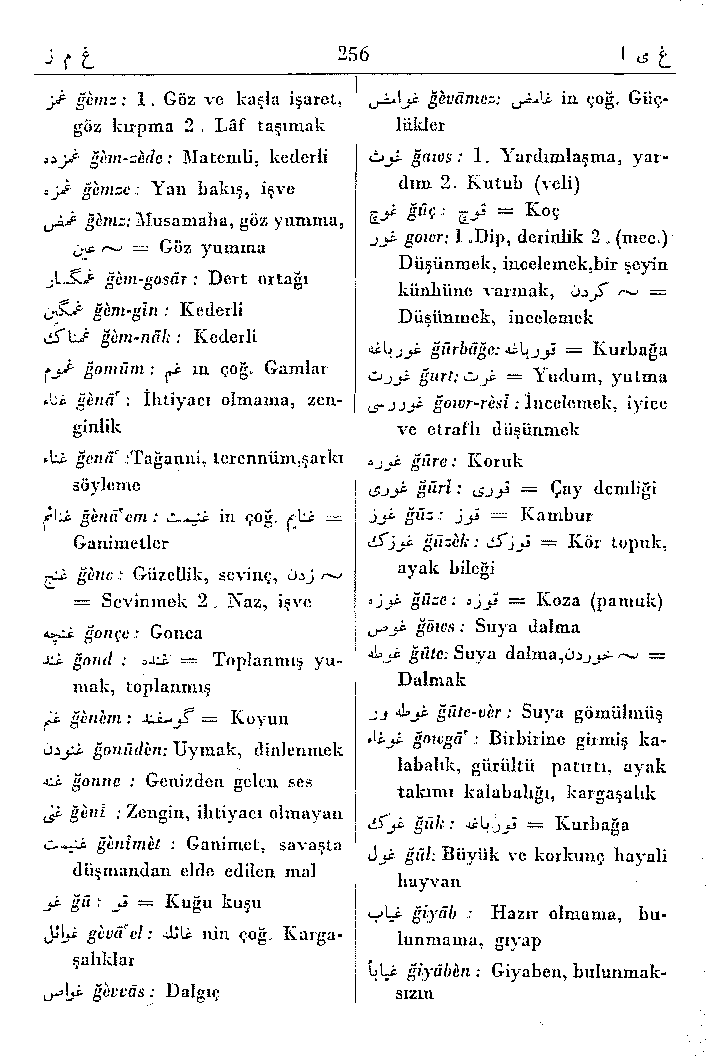 غ م ز 256 غ ی ا
غمز ğèmz : 1. Göz ve kaşla işaret,
göz kırpma 2 . Lâf taşımak
غمزده ğèm-zède : Matemli, kederli
غمزه ğèmze : Yan bakış, işve
غمض ğèmz: Musamaha, göz yumma,
عین ~ = Göz yumma
غمگسار ğèm-gosār : Dert ortağı
غمگین ğèm-gîn : Kederli
غمناك ğèm-nāk : Kederli
غموم ğomūm : غم ın çoğ. Gamlar
غناء ğènā' : İhtiyacı olmama, zen-
ginlik
غناء ğenā' :Tağanni, terennüm,şarkı
söyleme
غنائم ğènā'em : غنیمت in çoğ. غنایم =
Ganimetler
غنج ğènc : Güzellik, sevinç, زدن ~
= Sevinmek 2 . Naz, işve
غنچه ğonçe : Gonca
غند ğond : غنده = Toplanmış yu-
mak, toplanmış
غنم ğènèm : گوسفند = Koyun
غنودن ğonūdèn: Uymak, dinlenmek
غنه ğonne : Genizden gelen ses
غنی ğènî : Zengin, ihtiyacı olmayan
غنیمت ğènîmèt : Ganimet, savaşta
düşmandan elde edilen mal
غو ğū : قو = Kuğu kuşu
غوائل ğèvā'el : غائله nin çoğ. Karga-
şalıklar
غواص ğèvvās : Dalgıç
غوامض ğèvāmez: غامض in çoğ. Güç-
lükler
غوث ğaws : 1. Yardımlaşma, yar-
dım 2. Kutub (veli)
غوچ ğūç : قوچ = Koç
غور gowr: 1 .Dip, derinlik 2 . (mec.)
Düşünmek, incelemek,bir şeyin
künhüne varmak, کردن ~ =
Düşünmek, incelemek
غورباغه ğūrbāğe: قورباغه = Kurbağa
غورت ğurt: غرت = Yudum, yutma
غوررسی ğowr-rèsî : İncelemek, iyice
ve etraflı düşünmek
غوره ğūre : Koruk
غوری ğūrî : قوری = Çay demliği
غوز ğūz : قوز = Kambur
غوزك ğūzèk : قوزك = Kör topuk,
ayak bileği
غوزه ğūze : قوزه = Koza (pamuk)
غوص ğows : Suya dalma
غوطه ğūte: Suya dalma,خوردن ~ =
Dalmak
غوطه ور ğūte-vèr : Suya gömülmüş
غوغاء ğowgā' : Birbirine girmiş ka-
labalık, gürültü patırtı, ayak
takımı kalabalığı, kargaşalık
غوك ğūk : قورباغه = Kurbağa
غول ğūl: Büyük ve korkunç hayali
hayvan
غیاب ğiyāb : Hazır olmama, bu-
lunmama, gıyap
غیاباً ğiyābèn : Giyaben, bulunmak-
sızın